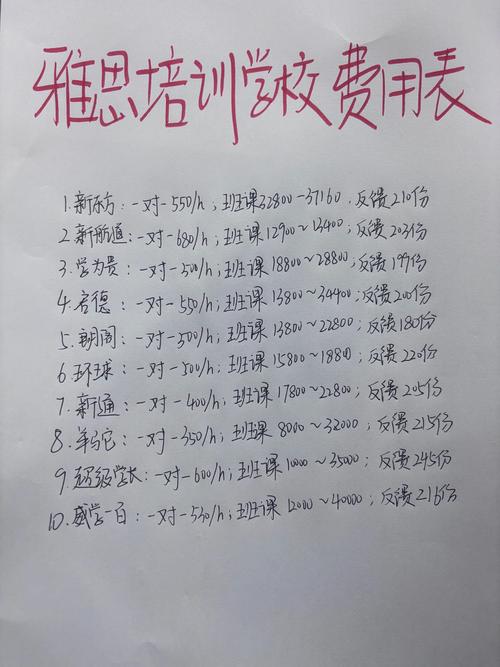 雅思培训学校费用表
1.新东方:一对一550/h;班课32800-37160.反馈210份
2.新航道:一对一680/h;班课12900~13400;反馈203份
3.学为贵:一对一500/h;班课18800~28800;反馈199份
4.启德:一对一550/h;班课13800~34400;反馈200份
5.朗阁:一对一500/h;班课13800~22800;反馈180份
6.环球:一对一500/h;班课15800~18800;反馈220份
7.新通:一对一400/h;班课17800~22800;反馈205份
8.羊驼:一对一350/h;班课8000~32000;反馈215份
9.超级学长:一对一600/h;班课10000~35000;反馈245份
10.威学一百:一对一530/h;班课12000~40000;反馈216份